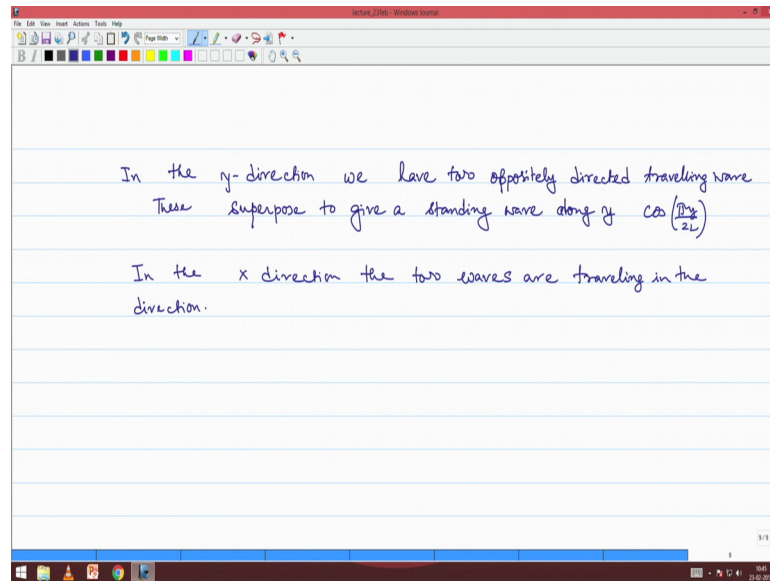 lecture_23feb - Windows Journal
File Edit View Insert Actions Tools Help
Page Width
B I
In the y-direction we have two oppositely directed travelling wave
These superpose to give a standing wave along y cos(πy/2L)
In the x direction the two waves are traveling in the
direction.
9/9
9
10:45